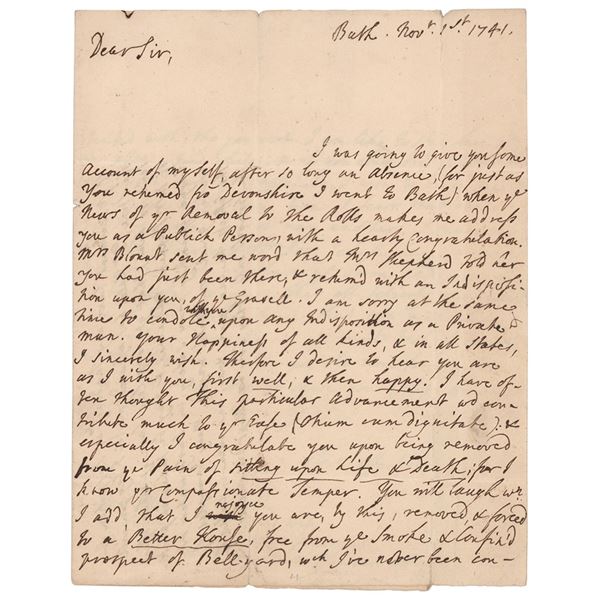 Bath. Novr. 1st. 1741.
Dear Sir,
I was going to give you some
Account of myself, after so long an Absence, (for just as
You returned fro Devonshire I went to Bath) when ye
News of yr Removal to the Rolls makes me address
you as a Publick Person, with a hearty Congratulation.
Mrs Blount sent me word that Mrs Shepherd told her
You had just been there, & returnd with an Indisposi-
tion upon you, of ye Gravell. I am sorry at the same
time to condole with you upon any Indisposition as a Private
man. Your Happiness of all kinds, & in all States,
I sincerely wish. Therefore I desire to hear you are
as I wish you, first well, & then happy. I have of-
ten thought This particular Advancement wd con-
tribute much to yr Ease (Otium cum dignitate). &
especially I congratulate you upon being removed
from ye Pain of sitting upon Life & Death; for I
know yr Compassionate Temper. You will laugh wn
I add, that I rejoyce you are, by this, removed & forced
to a Better House, free from ye Smoke & Confin'd
prospect of Bell-yard, wch I've never been con-